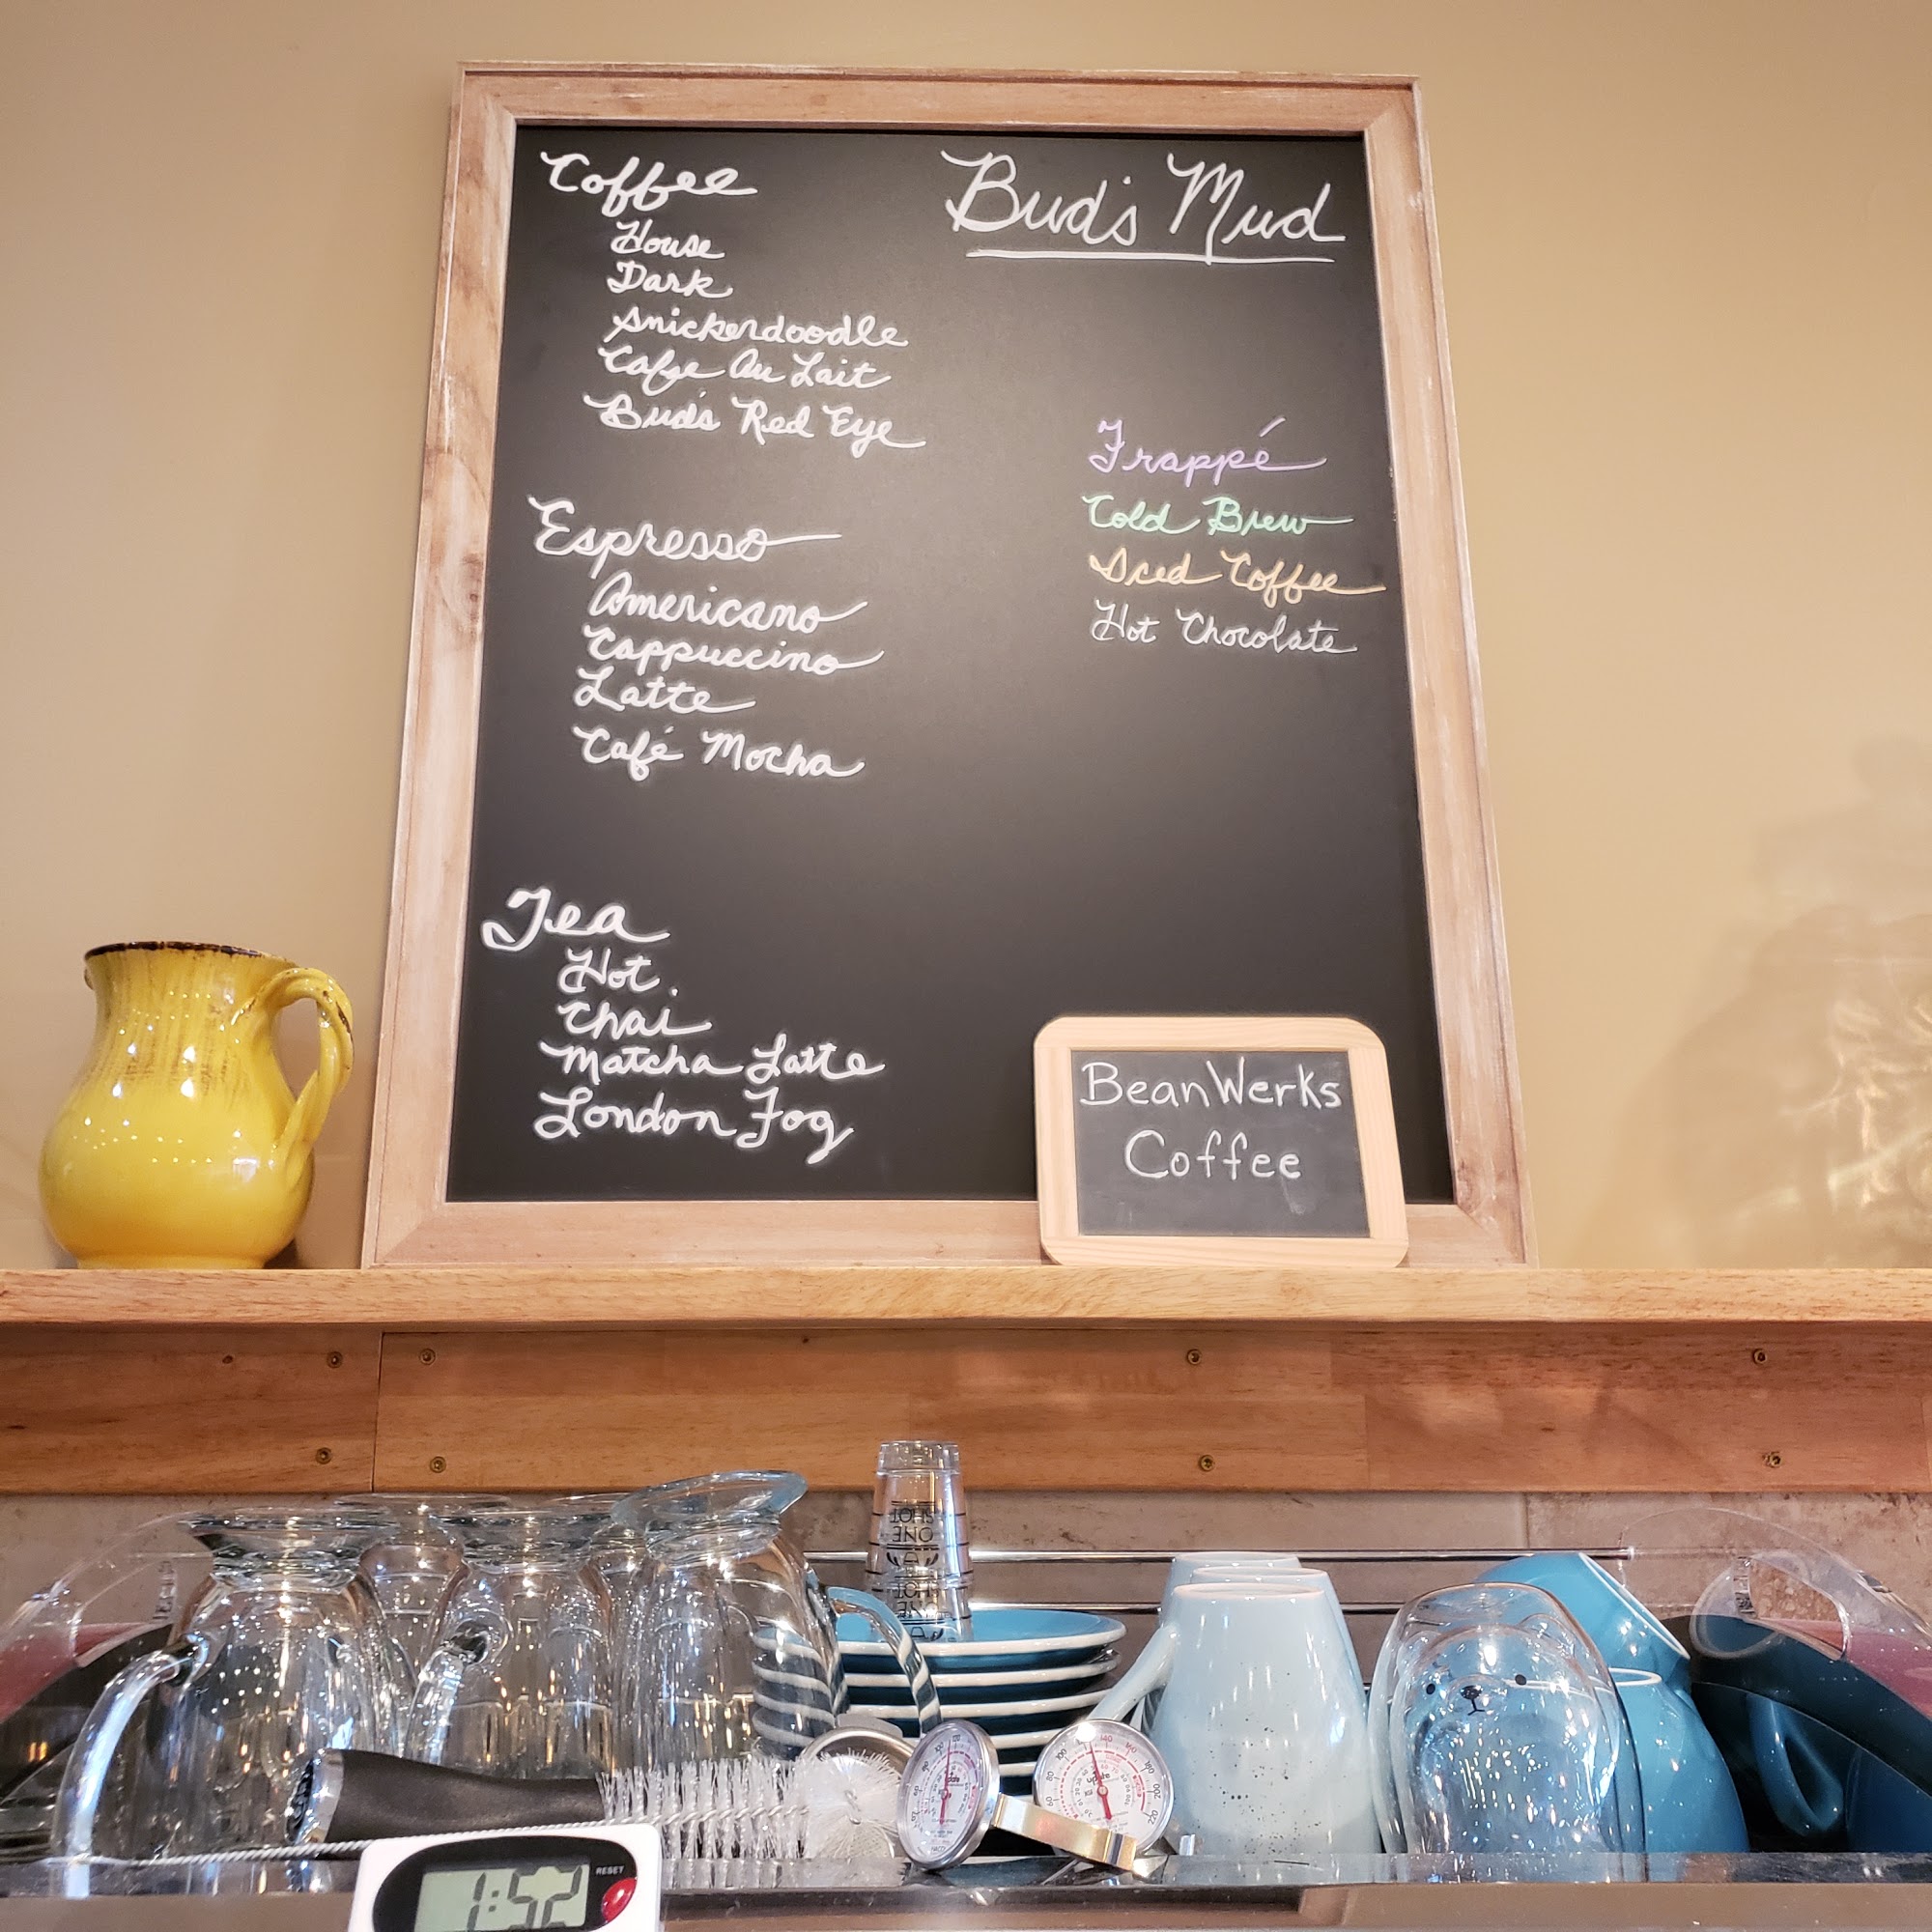 Coffee
House
Dark
Snickerdoodle
Cafe Au Lait
Bud's Red Eye
Espresso
Americano
Cappuccino
Latte
Café Mocha
Tea
Hot
Chai
Matcha Latte
London Fog
Bud's Mud
Frappé
Cold Brew
Iced Coffee
Hot Chocolate
BeanWerks
Coffee
ONE
SHOT
RESET
1:52